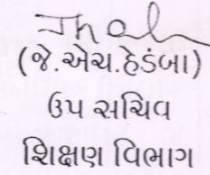 (જે.એચ.હેડંબા)
ઉપ સચિવ
શિક્ષણ વિભાગ